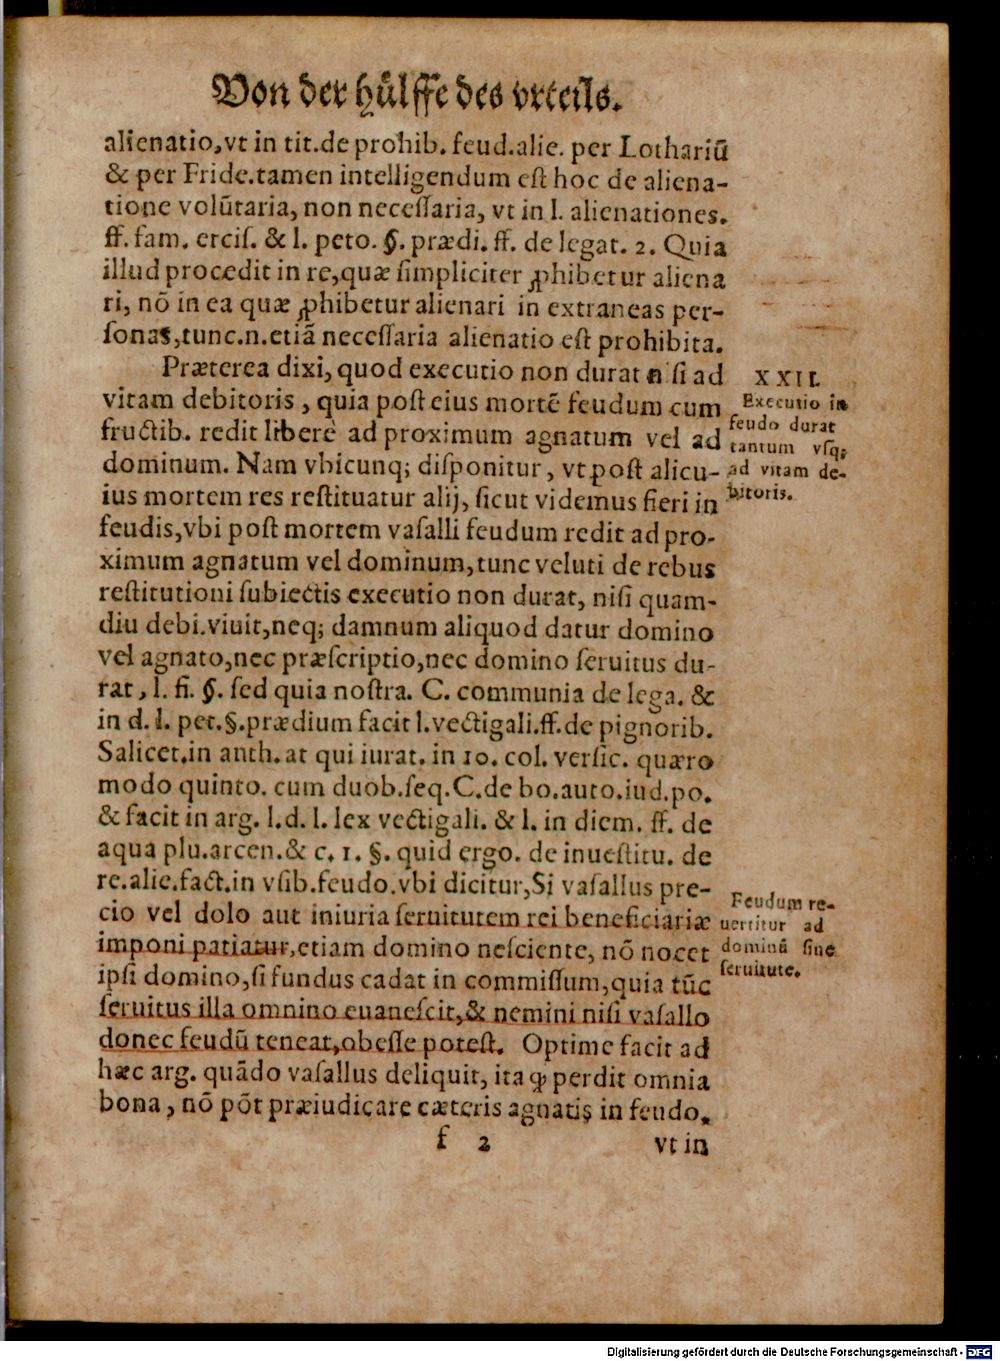 Von der hülffe des vrteils.
alienatio,vt in tit.de prohib. feud.alie. per Lothariũ
& per Fride.tamen intelligendum eſt hoc de aliena-
tione volũtaria, non neceſſaria, vt in l. alienationes.
ff. fam. erciſ. & l. peto. §. prædi. ff. de legat. 2. Quia
illud procedit in re,quæ ſimpliciter ꝓhibetur aliena
ri, nõ in ea quæ ꝓhibetur alienari in extraneas per-
ſonas,tunc.n.etiã neceſſaria alienatio eſt prohibita.
Præterea dixi, quod executio non durat n ſi ad
vitam debitoris, quia poſt eius mortẽ feudum cum
fructib. redit liberè ad proximum agnatum vel ad
dominum. Nam vbicunq; diſponitur, vt poſt alicu-
ius mortem res reſtituatur alij, ſicut videmus fieri in
feudis,vbi poſt mortem vaſalli feudum redit ad pro-
ximum agnatum vel dominum,tunc veluti de rebus
reſtitutioni ſubiectis executio non durat, niſi quam-
diu debi.viuit,neq; damnum aliquod datur domino
vel agnato,nec præſcriptio,nec domino ſeruitus du-
rat, l. fi. §. ſed quia noſtra. C. communia de lega. &
in d. l. pet.§.prædium facit l.vectigali.ff.de pignorib.
Salicet.in auth. at qui iurat. in 10. col. verſic. quæro
modo quinto. cum duob.ſeq.C.de bo.auto.iud.po.
& facit in arg. l.d. l. lex vectigali. & l. in diem. ff. de
aqua plu.arcen.& c. 1. §. quid ergo. de inueſtitu. de
re.alie.fact.in vſib.feudo.vbi dicitur,Si vaſallus pre-
cio vel dolo aut iniuria ſeruitutem rei beneficiariæ
imponi patiatur,etiam domino neſciente, nõ nocet
ipſi domino,ſi fundus cadat in commiſſum,quia tũc
ſeruitus illa omnino euaneſcit,& nemini niſi vaſallo
donec feudũ teneat,obeſſe poteſt. Optime facit ad
hæc arg. quãdo vaſallus deliquit, ita ꝙ perdit omnia
bona, nõ põt præiudicare cæteris agnatis in feudo.
f 2 vt in
XXII.
Executio in
feudo durat
tantum vſq;
ad vitam de-
bitoris.
Feudum re-
uertitur ad
dominũ ſine
ſeruitute.
Digitalisierung gefördert durch die Deutsche Forschungsgemeinschaft - DFG